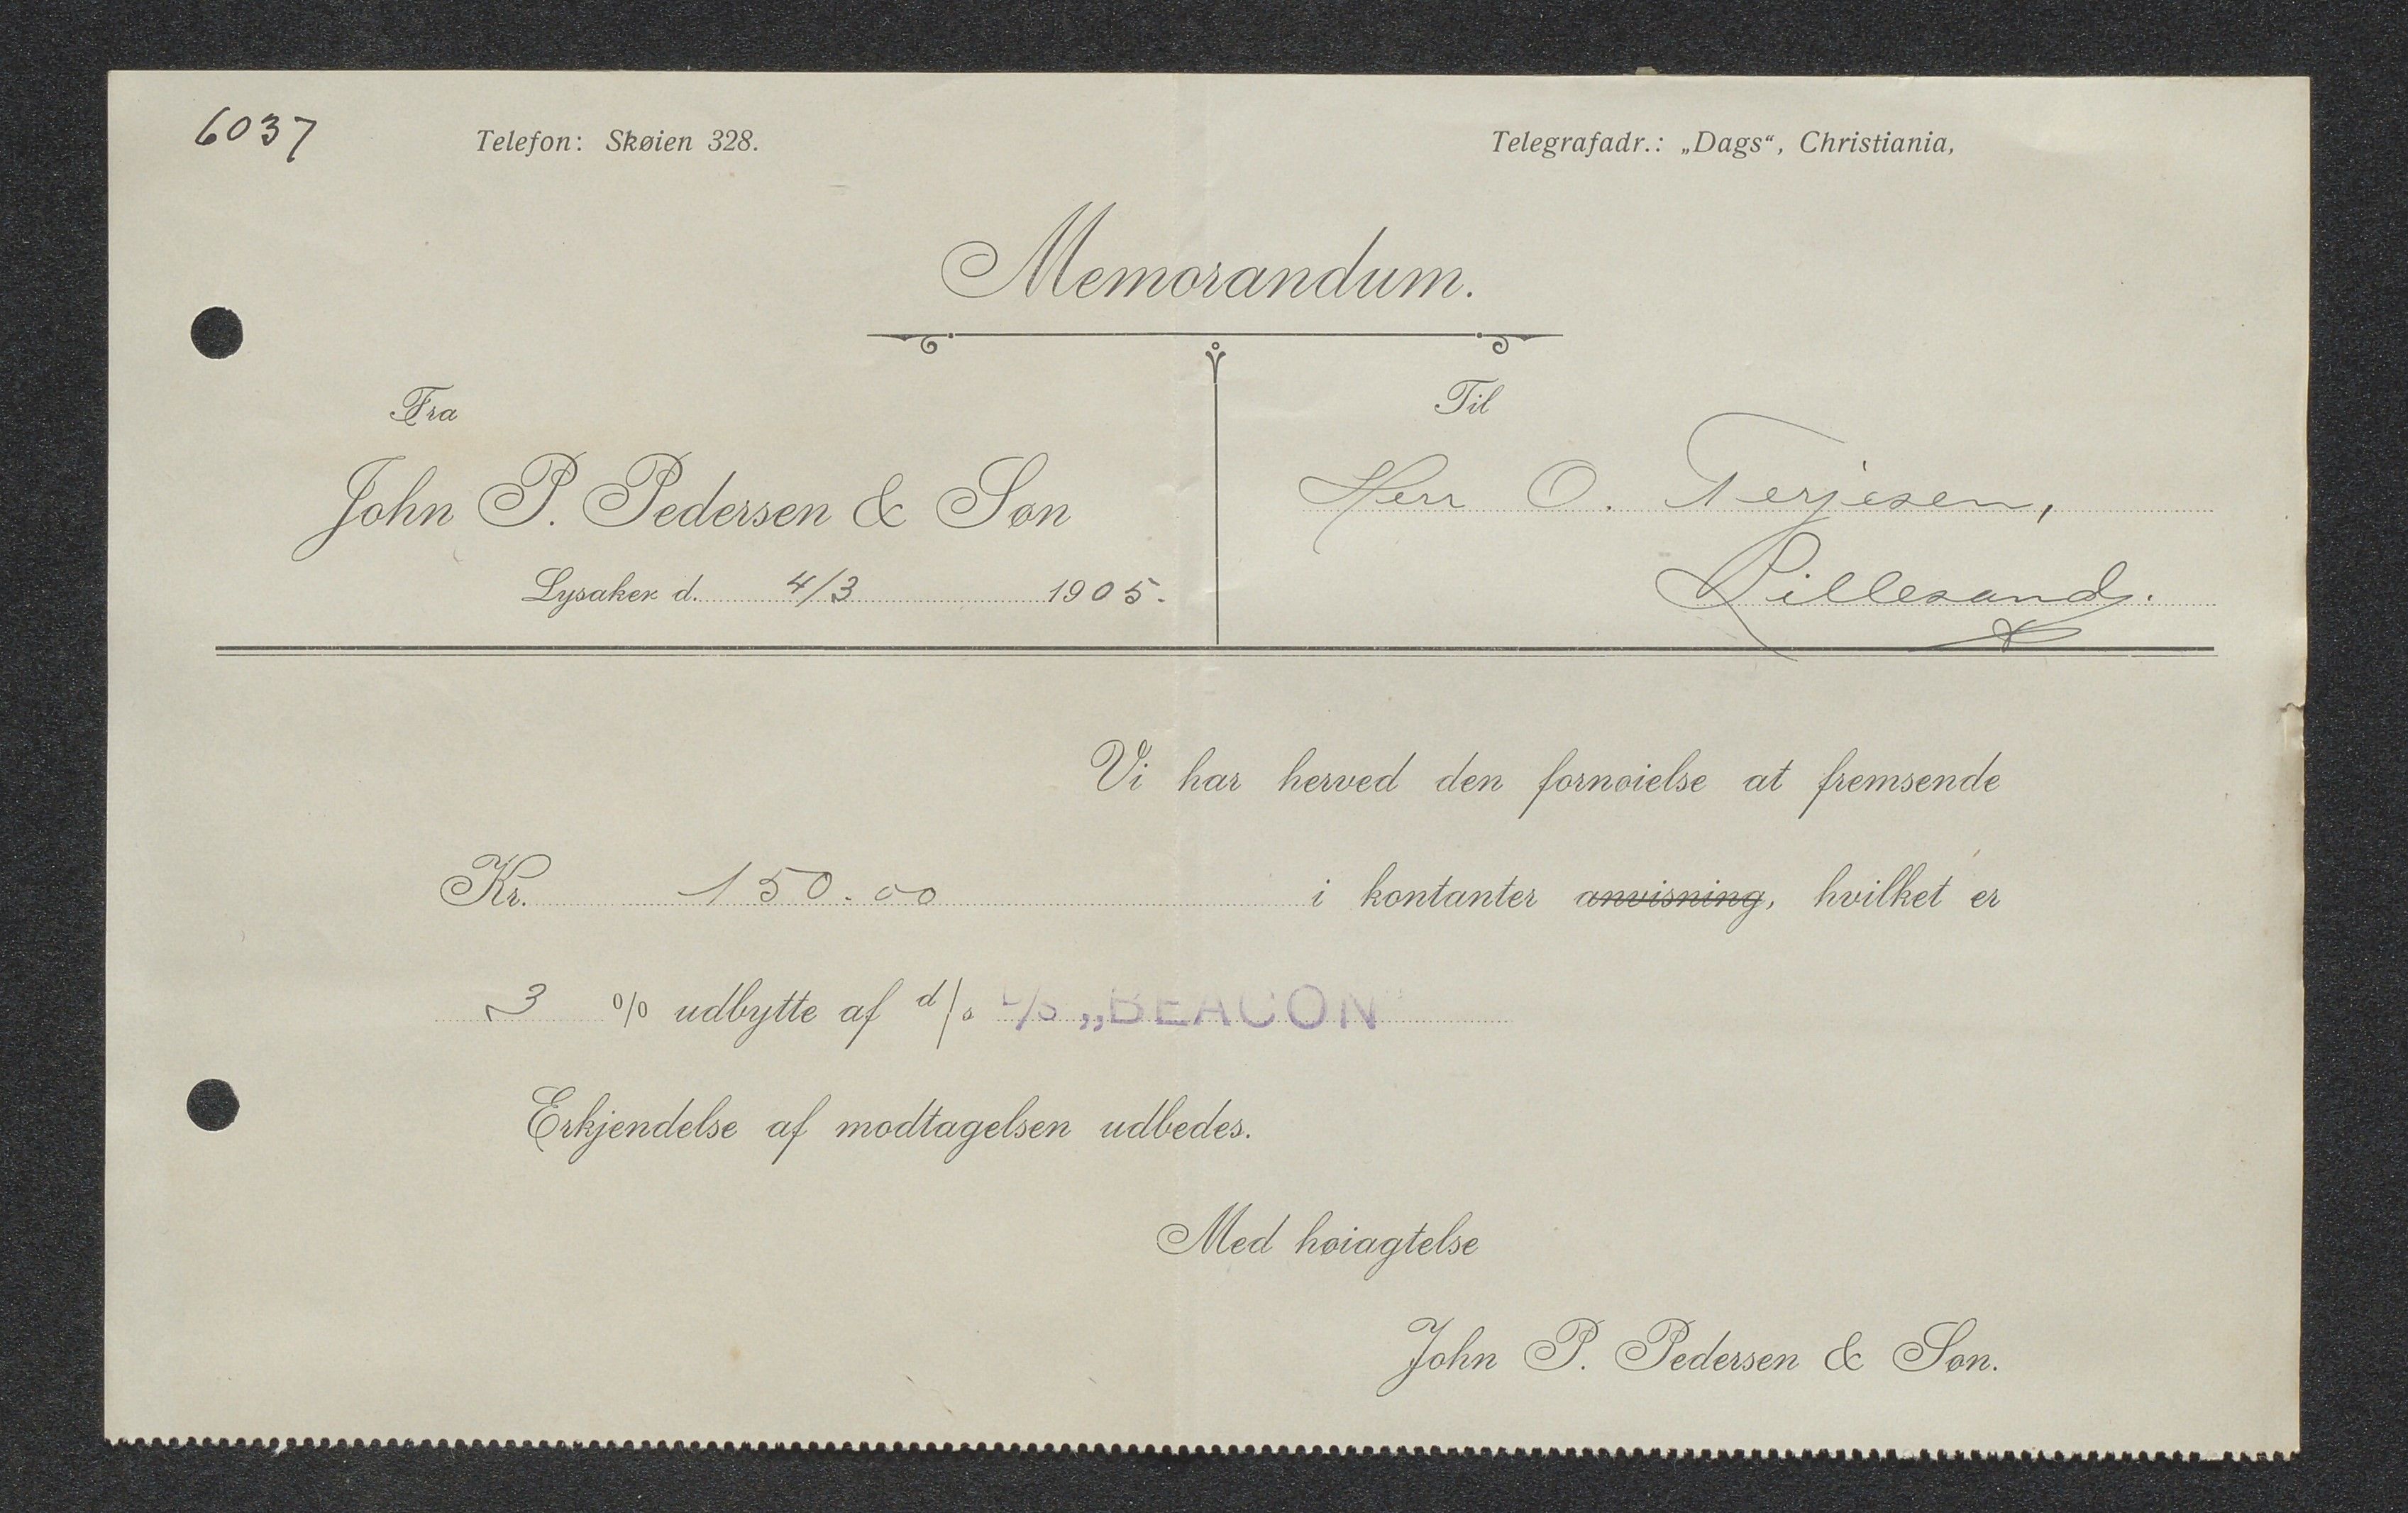 6037
Telefon: Skøien 328.
Telegrafadr.: „Dags“, Christiania,
Memorandum.
Fra
John P. Pedersen & Søn
Lysaker d. 4/3 1905.
Til
Herr O. Terjesen,
Lillesand.
Vi har herved den fornøielse at fremsende
Kr. 150.00 i kontanter anvisning, hvilket er
3 % udbytte af d/s D/S „BEACON“
Erkjendelse af modtagelsen udbedes.
Med høiagtelse
John P. Pedersen & Søn.